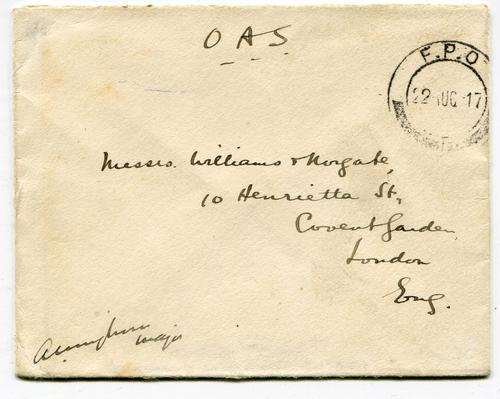 O A S
F.P.O
22 AUG 17
Messrs. Williams & Norgate,
10 Henrietta St,
Covent Garden,
London
Eng.
major